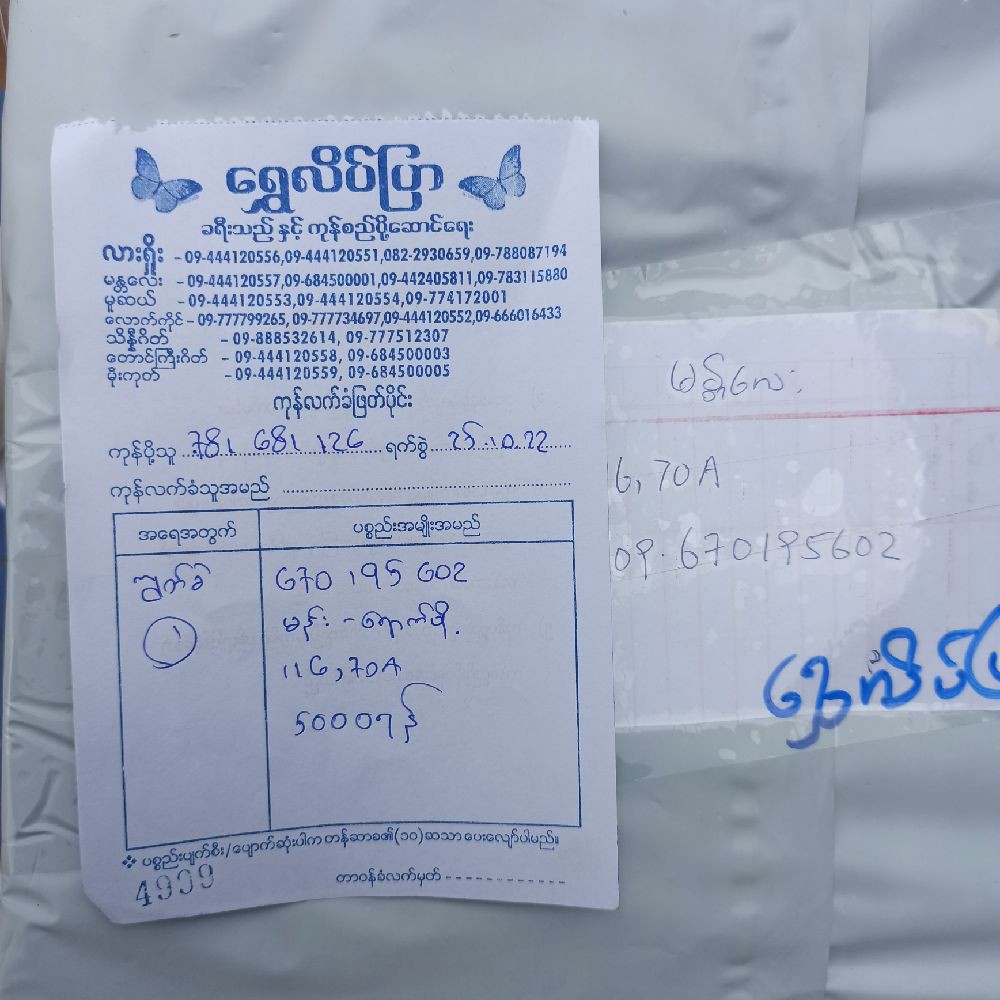 ရွှေလိပ်ပြာ
ခရီးသည် နှင့် ကုန်စည်ပို့ဆောင်ရေး
လားရှိုး - 09-444120556,09-444120551,082-2930659,09-788087194
မန္တလေး - 09-444120557,09-684500001,09-442405811,09-783115880
မူဆယ် - 09-444120553,09-444120554,09-774172001
လောက်ကိုင် - 09-777799265,09-777734697,09-444120552,09-666016433
သိန္နီဂိတ် - 09-888532614, 09-777512307
တောင်ကြီးဂိတ် - 09-444120558, 09-684500003
မိုးကုတ် - 09-444120559, 09-684500005
ကုန်လက်ခံဖြတ်ပိုင်း
ကုန်ပို့သူ 781 681 126 ရက်စွဲ 25.10.22
ကုန်လက်ခံသူအမည်
အရေအတွက် ပစ္စည်းအမျိုးအမည်
670 195 602
၁ မန်း - ရောက်ပို့
116,70A
5000 ရန်
ပစ္စည်းပျက်စီး/ပျောက်ဆုံးပါက တန်ဆာခ၏(၁၀)ဆသာ ပေးလျော်ပါမည်။
4999
တာဝန်ခံလက်မှတ်
မန္တလေး
16,70A
09.670195602
ရွှေလိပ်ပြ